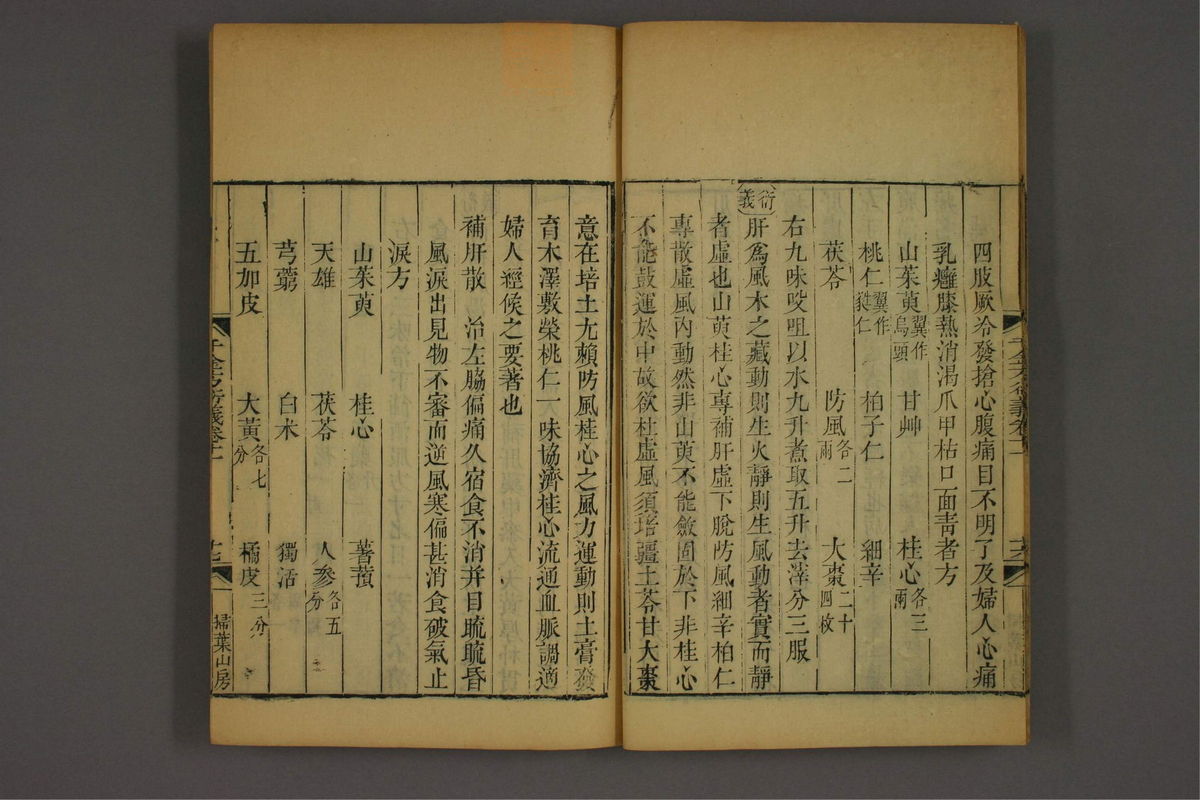 四肢厥冷發搶心腹痛目不明了及婦人心痛
乳癰膝熱消渴爪甲枯口面靑者方
山茱萸翼作烏頭 甘艸 桂心各三兩
桃仁翼作㽔仁 柏子仁 細辛
茯苓 防風各二兩 大棗二十四枚
右九味㕮咀以水九升煮取五升去滓分三服
衍義
肝爲風木之藏動則生火靜則生風動者實而靜
者虛也山萸桂心專補肝虛下脫防風細辛柏仁
專散虛風內動然非山萸不能斂固於下非桂心
不能鼓運於中故欲杜虛風須培疆土苓甘大棗
意在培土尢賴防風桂心之風力運動則土膏發
育木澤敷榮桃仁一味協濟桂心流通血脈調適
婦人經候之要著也
補肝散 治左脇偏痛久宿食不消并目䀮䀮昏
風淚出見物不審而逆風寒偏甚消食破氣止
淚方
山茱萸 桂心 薯蕷
天雄 茯苓 人參各五分
芎藭 白朮 獨活
五加皮 大黃各七分 橘皮三分
千金方衍義卷十一
掃葉山房